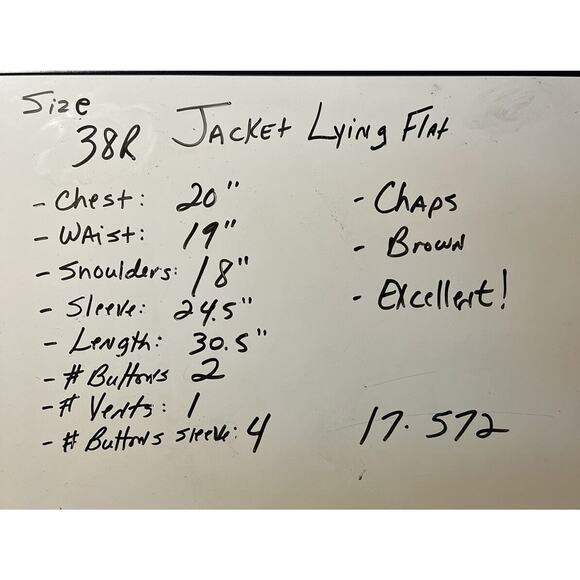 Size
38R Jacket Lying Flat
- Chest: 20"
- Waist: 19"
- Shoulders: 18"
- Sleeve: 24.5"
- Length: 30.5"
- # Buttons 2
- # Vents: 1
- # Buttons sleeve: 4
- Chaps
- Brown
- Excellent!
17.572